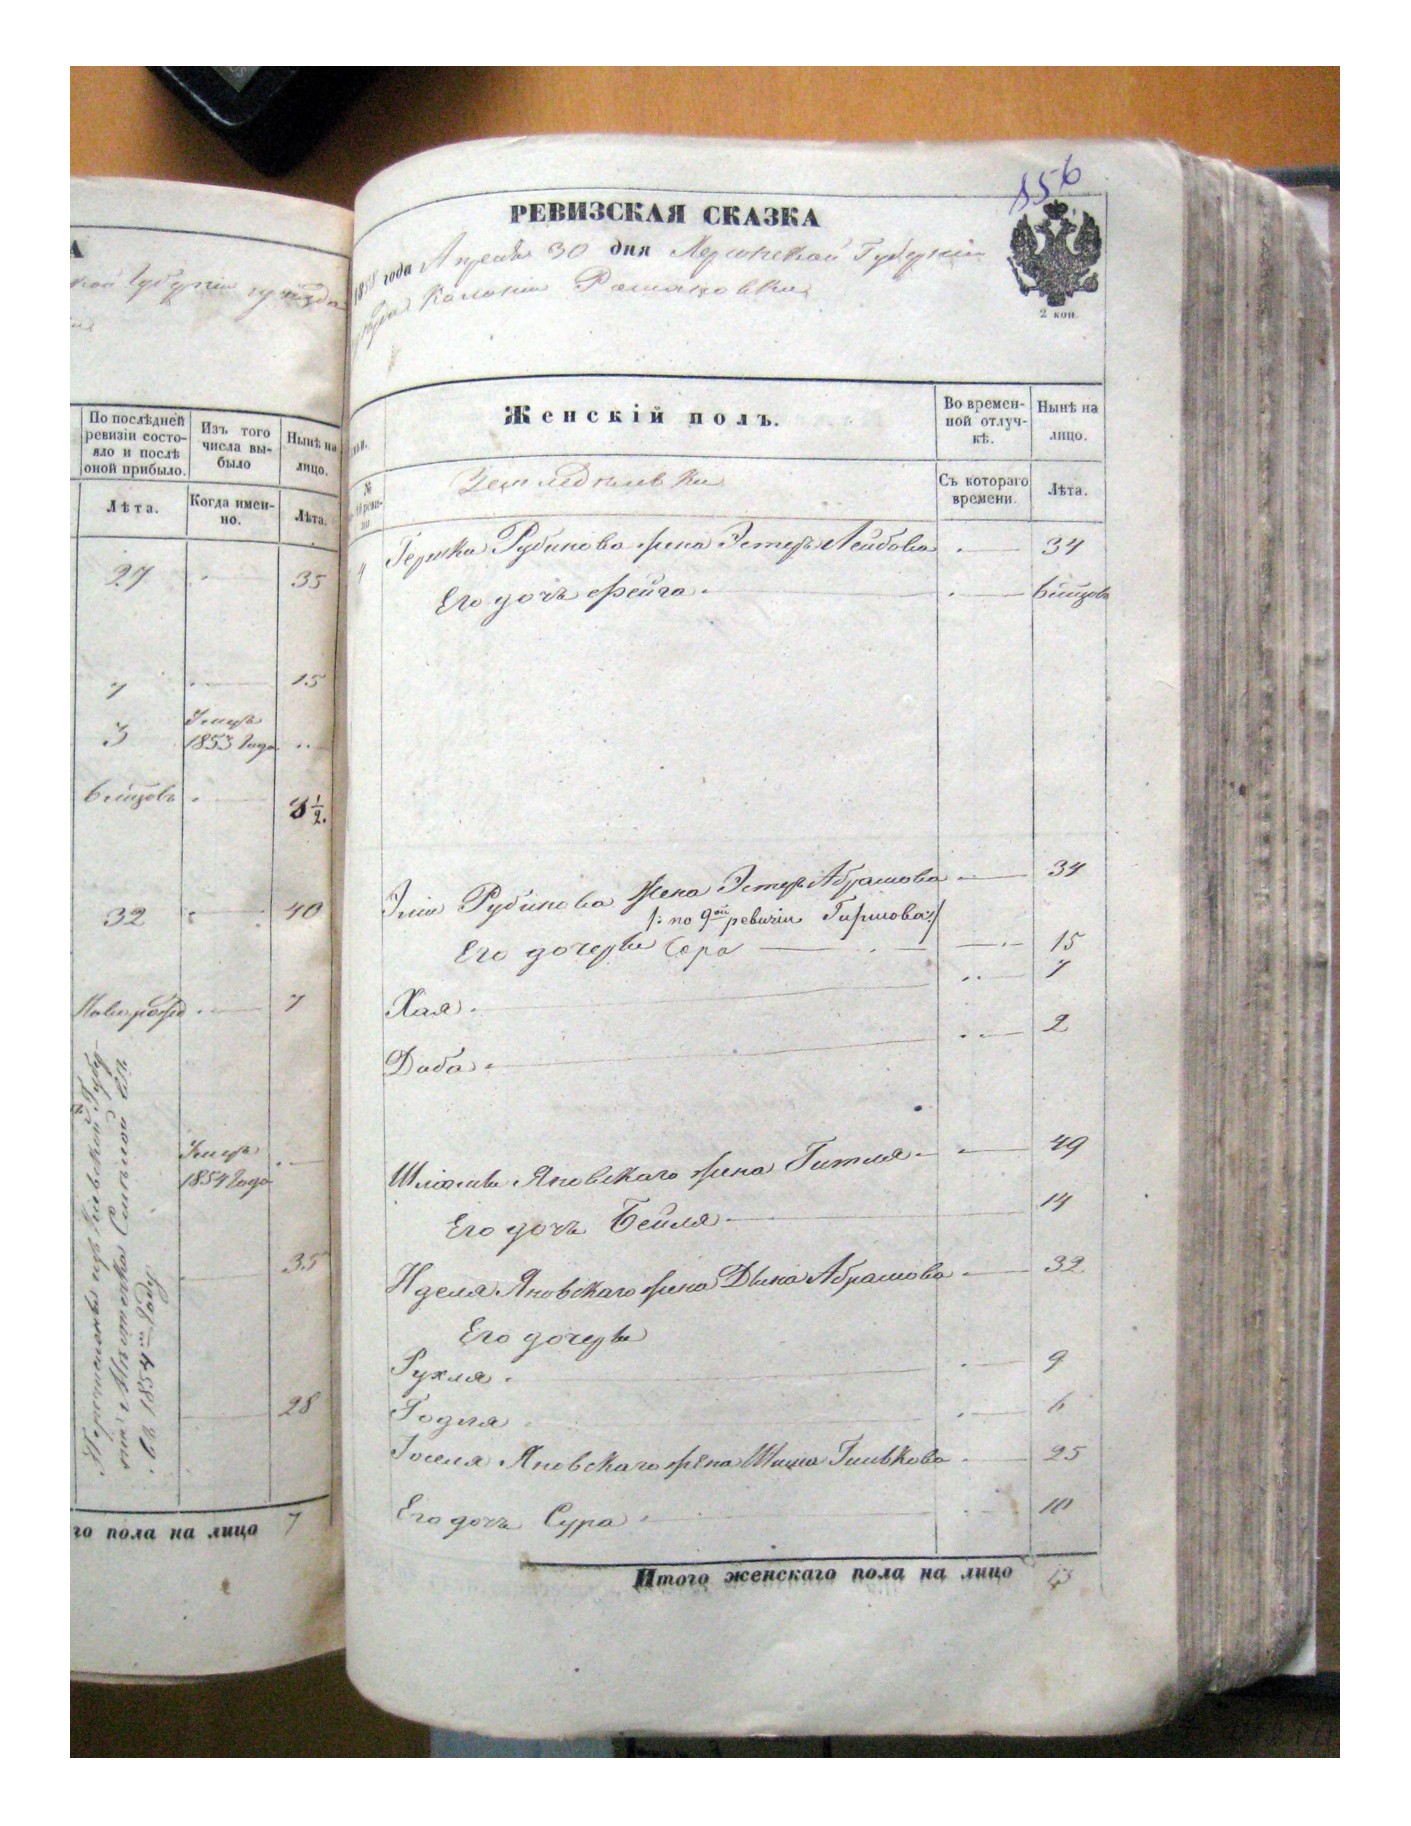 А
кой Губерніи
По послѣдней ревизіи состо-
яло и послѣ
оной прибыло.
Изъ того
числа вы-
было
Нынѣ на
лицо.
Лѣта.
Когда имен-
но.
Лѣта.
27 35
7 15
3 Умеръ 1853 года
6 мѣсцовъ 8 1/2.
32 40
Новорожд 7
Умеръ
1854 года
35
Перечисленъ изъ Кіевской Губер-
въ 1854 м году
28
го пола на лицо 7
856
РЕВИЗСКАЯ СКАЗКА
1858 года Апреля 30 дня Херсонской Губерніи
уезда Колоніи Романовки
2 коп.
Женскій полъ.
Во времен-
ной отлуч-
кѣ.
Нынѣ на
лицо.
№
Земледѣльцы
Съ котораго
времени.
Лѣта.
4 Гершка Рубинова жена Эстеръ Лейбова 34
Его дочь Фейга 6 мѣсцовъ
Элія Рубинова Жена Эстеръ Абрамова 34
/: по 9ой ревизіи Гиршова:/
Его дочери Сора 15
Хая 7
Доба 2
Шліомы Яновскаго жена Гитля 49
Его дочь Бейля 14
Иделя Яновскаго жена Дына Абрамова 32
Его дочери
Рухля 9
Годля 6
Іоселя Яновскаго жена 25
Его дочь Сура 10
Итого женскаго пола на лицо 13